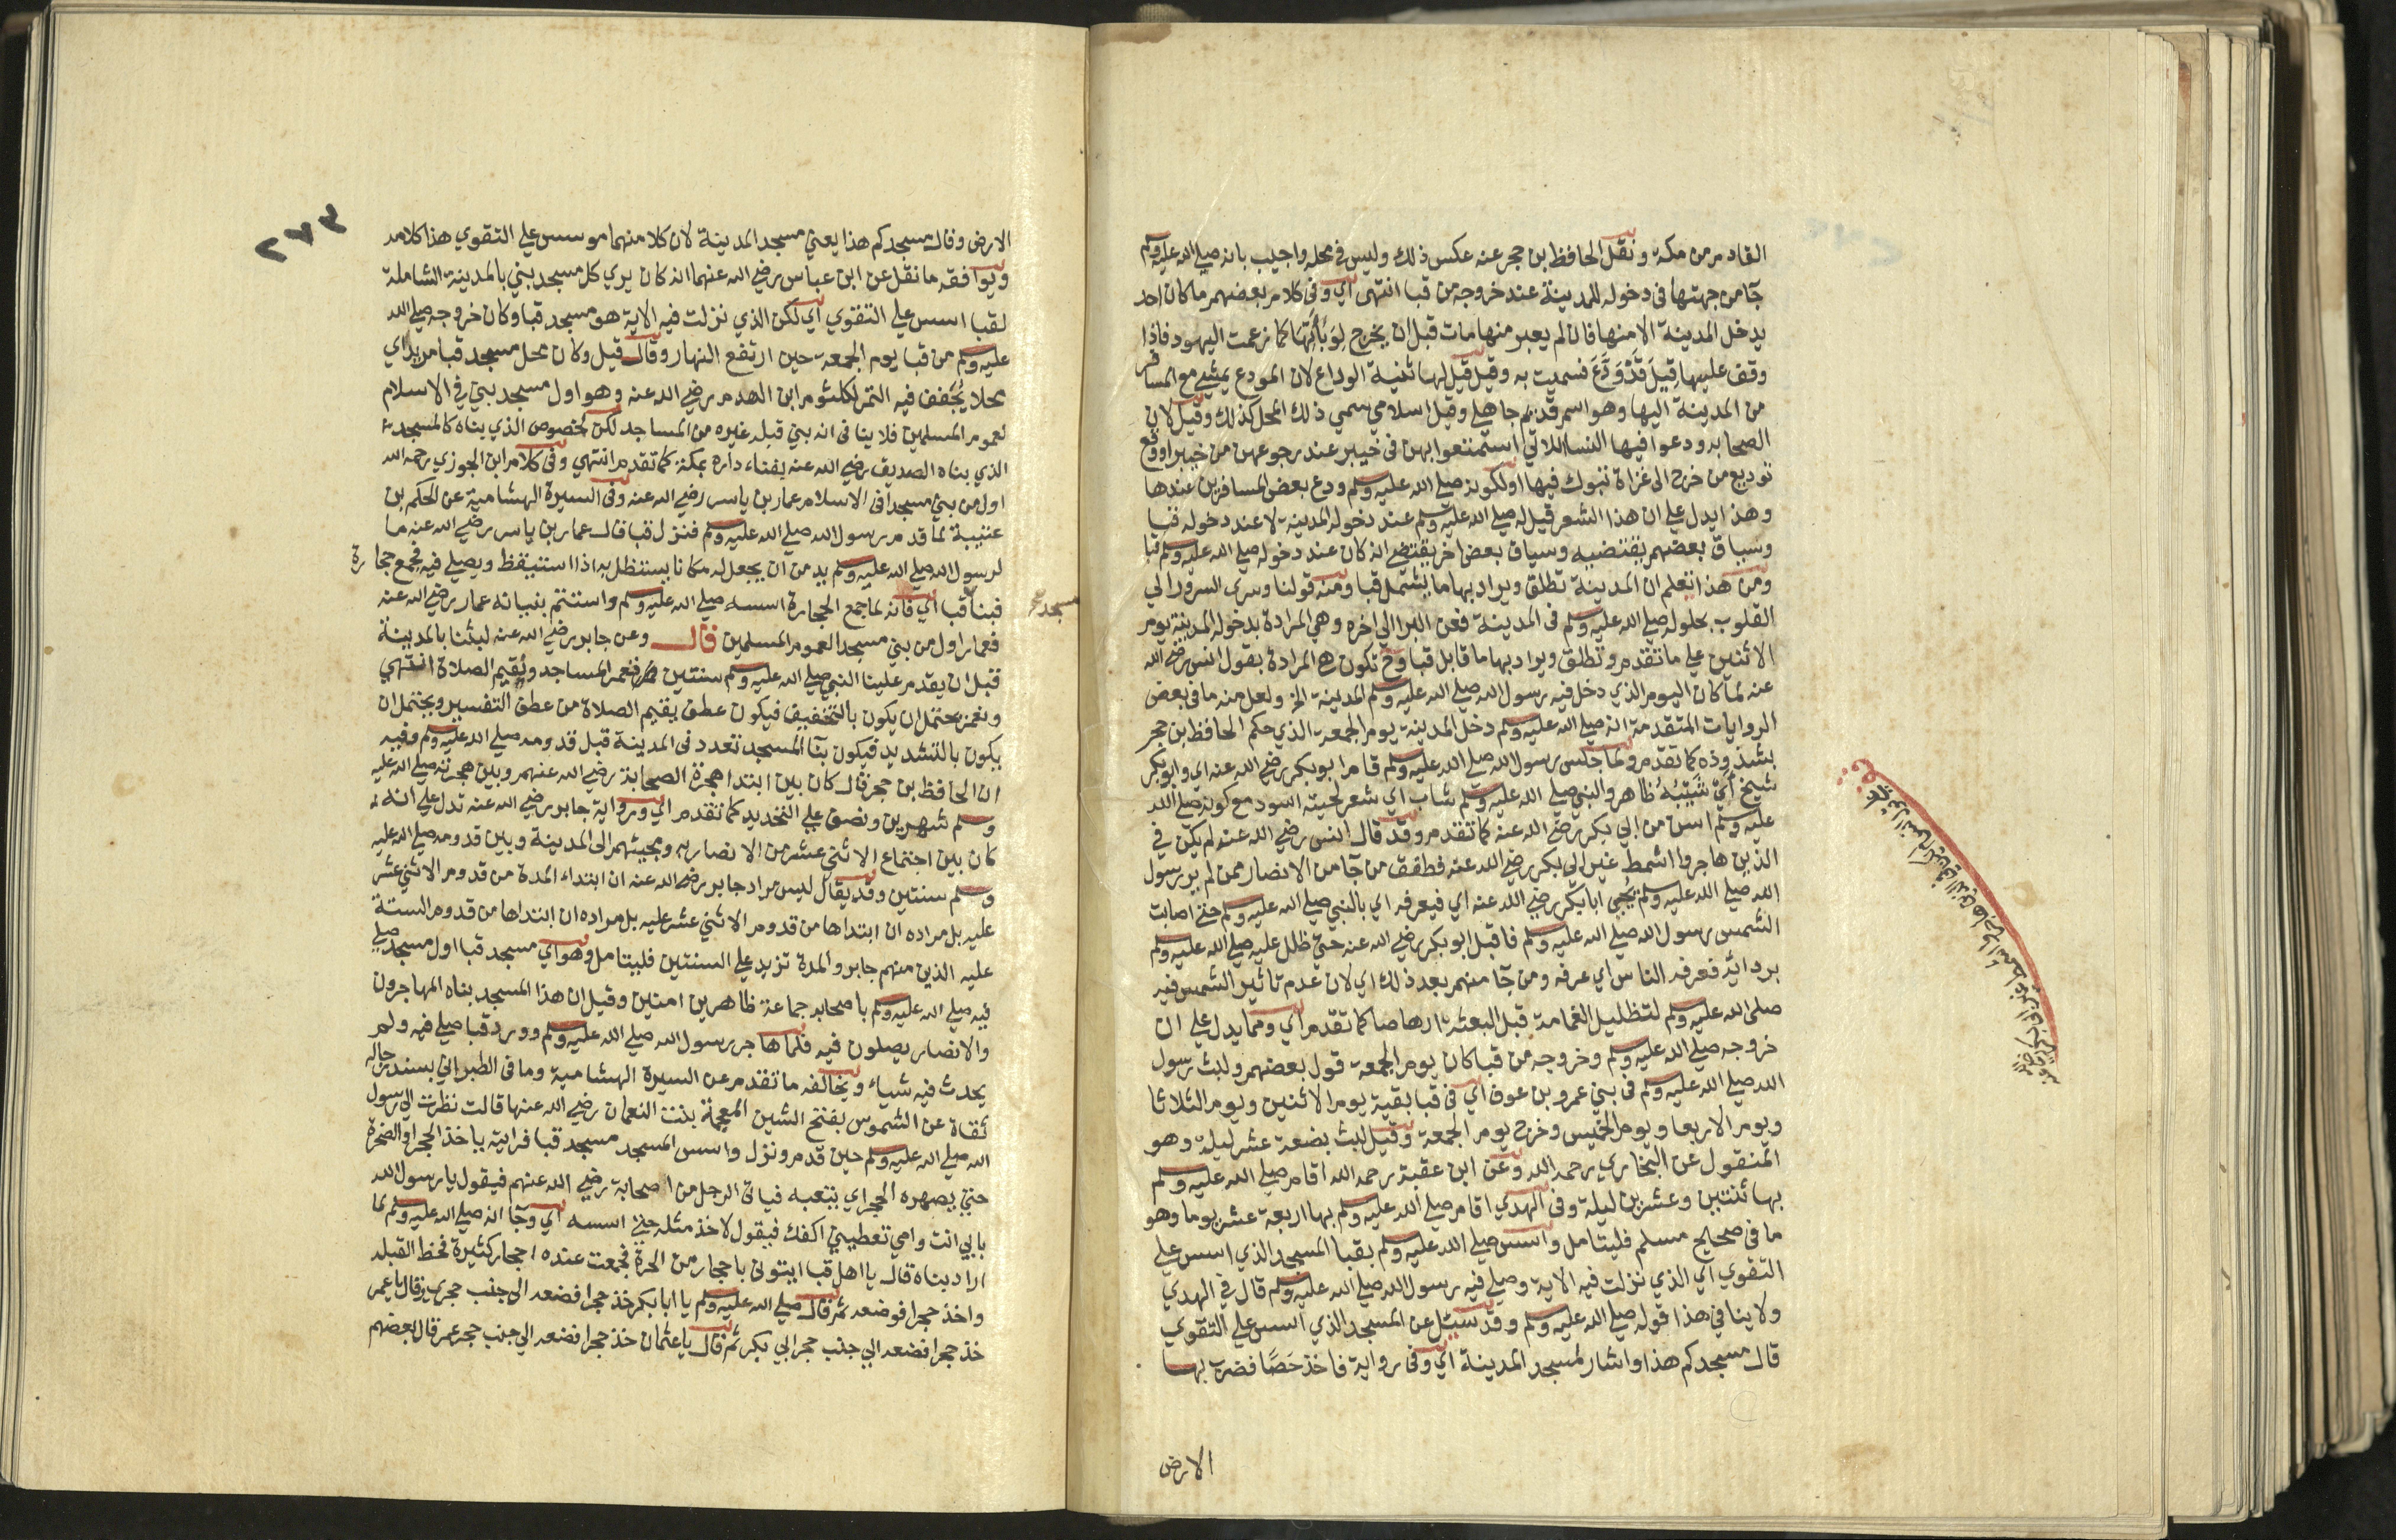 القادم من مكة ونقل الحافظ بن حجر عنه عكس ذلك وليس في محله واجيب بانه صلي الله عليه وسلم
جآ من جهتها في دخوله للمدينة عند خروجه من قبا انتهى اي وفي كلام بعضهم ما كان احد
يدخل المدينة الا منها فان لم يعبر منها مات قبل ان يخرج لِوَبَائِهَا كما زعمت اليهود فاذا
وقف عليها قِيلَ قَدْ وَدَّعَ فسميت به وقيل قيل لها ثنية الوداع لان المودع يمشي مع المسافر
من المدينة اليها وهو اسم قديم جاهلي وقيل اسلامي سمي ذلك المحل كذلك وقيل لان
الصحابه ودعوا فيها النسا اللاتي استمتعوا بهن في خيبر عند رجوعهن من خيبر او وقع
توديع من خرج الى غزاة تبوك فيها او لكونه صلي الله عليه وسلم ودع بعض المسافرين عندها
وهذا يدل علي ان هذا الشعر قيل له صلي الله عليه وسلم عند دخوله المدينة لا عند دخوله قبا
وسياق بعضهم يقتضيه وسياق بعض اخر يقتضي انه كان عند دخوله صلي الله عليه وسلم قبا
ومن هذا تعلم ان المدينة تطلق ويراد بها ما يشمل قبا ومنه قولنا وسرى السرور الي
القلوب بحلوله صلي الله عليه وسلم في المدينة فعن البرا الي اخره وهي المرادة بدخوله المدينة يوم
الاثنين علي ما تقدم وتطلق ويراد بها ما قابل قبا وح تكون هي المرادة بقول انس رضي الله
عنه لما كان اليوم الذي دخل فيه رسول الله صلي الله عليه وسلم المدينة الخ ولعل منه ما في بعض
الروايات المتقدمة انه صلي الله عليه وسلم دخل المدينة يوم الجمعة الذي حكم الحافظ بن حجر
بشذوذه كما تقدم ولما جلس رسول الله صلي الله عليه وسلم قام ابو بكر رضي الله عنه اي وابو بكر
شيخ أي شَيْبُهُ ظاهر والنبي صلي الله عليه وسلم شاب اي شعر لحيته اسود مع كونه صلي الله
عليه وسلم اسن من ابي بكر رضي الله عنه كما تقدم وقد قال انس رضي الله عنه لم يكن في
الذين هاجروا اشمط غير ابي بكر رضي الله عنه فطفق من جآ من الانصار ممن لم ير رسول
الله صلي الله عليه وسلم يُحيى ابا بكر رضي الله عنه اي فيعرفه اي بالنبي صلي الله عليه وسلم حتى اصابت
الشمس رسول الله صلي الله عليه وسلم فاقبل ابو بكر رضي الله عنه حتى ظلل عليه صلي الله عليه وسلم
بردائه فعرفه الناس اي عرفه ومن جآ منهم بعد ذلك اي لان عدم تاثير الشمس فيه
صلى الله عليه وسلم لتظليل الغمامة قبل البعثة ارهاصا كما تقدم اي ومما يدل علي ان
خروجه صلي الله عليه وسلم وخروجه من قبا كان يوم الجمعة قول بعضهم ولبث رسول
الله صلي الله عليه وسلم في بني عمرو بن عوف اي في قبا بقية يوم الاثنين ويوم الثلاثا
ويوم الاربعا ويوم الخميس وخرج يوم الجمعة وقيل لبث بضعة عشر ليلة وهو
المنقول عن البخاري رحمه الله وعن ابن عقبة رحمه الله اقام صلي الله عليه وسلم
بها ثنتين وعشرين ليلة وفي الهدي اقام صلي الله عليه وسلم بها اربعة عشر يوما وهو
ما في صحيح مسلم فليتامل واسس صلي الله عليه وسلم بقبا المسجد الذي اسس علي
التقوي اي الذي نزلت فيه الاية وصلي فيه رسول الله صلي الله عليه وسلم قال في الهدي
ولا ينافي هذا قوله صلي الله عليه وسلم وقد سئل عن المسجد الذي اسس علي التقوي
قال مسجدكم هذا واشار لمسجد المدينة اي وفي رواية فاخذ حَصًا فضرب بها
الارض
الارض وقال مسجدكم هذا يعني مسجد المدينة لان كلا منهما موسس علي التقوي هذا كلامه
ويوافقه ما نقل عن ابن عباس رضي الله عنهما انه كان يري كل مسجد بني بالمدينة الشاملة
لقبا اسس علي التقوي اي لكن الذي نزلت فيه الاية هو مسجد قبا وكان خروجه صلي الله
عليه وسلم من قبا يوم الجمعة حين ارتفع النهار وقال قيل وكان محل مسجد قبا مربدا اي
محلا يُجفف فيه التمر لكلثوم ابن الهدم رضي الله عنه وهو اول مسجد بني في الاسلام
لعموم المسلمين فلا ينافي انه بني قبله غيره من المساجد لكن لخصوص الذي بناه كالمسجد
الذي بناه الصديق رضي الله عنه بفناء داره بمكة كما تقدم انتهي وفي كلام ابن الجوزي رحمه الله
اول من بني مسجدا في الاسلام عمار بن ياسر رضي الله عنه وفي السيرة الهشامية عن الحكم بن
عتيبة لما قدم رسول الله صلي الله عليه وسلم فنزل قبا قال عمار بن ياسر رضي الله عنه ما
لرسول الله صلي الله عليه وسلم بد من ان يجعل له مكانا يستظل به اذا استيقظ ويصلي فيه فجمع حجارة
فبنا قبا اي فانه لما جمع الحجارة اسسه صلي الله عليه وسلم واستتم بنيانه عمار رضي الله عنه
فعمار اول من بني مسجد العموم المسلمين قال وعن جابر رضي الله عنه لبثنا بالمدينة
قبل ان يقدم علينا النبي صلي الله عليه وسلم سنتين فنعمر المساجد ونُقيم الصلاة انتهي
ونعمر يحتمل ان يكون بالتخفيف فيكون عطف يقيم الصلاة من عطف التفسير ويحتمل ان
يكون بالتشديد فيكون بنآ المسجد تعدد في المدينة قبل قدومه صلي الله عليه وسلم وفيه
ان الحافظ بن حجر قال كان بين ابتدا هجرة الصحابة رضي الله عنهم وبين هجرته صلي الله عليه
وسلم شهرين ونصف علي التحديد كما تقدم اي ورواية جابر رضي الله عنه تدل علي انه
كان بين اجتماع الاثني عشر من الانصار به ومجيئهم الى المدينة وبين قدومه صلي الله عليه
وسلم سنتين وقد يقال ليس مراد جابر رضي الله عنه ان ابتداء المدة من قدوم الاثني عشر
عليه بل مراده ان ابتداها من قدوم الاثني عشر عليه بل مراده ان ابتداها من قدوم الستة
عليه الذين منهم جابر والمدة تزيد علي السنتين فليتامل وهو اي مسجد قبا اول مسجد صلي
فيه صلي الله عليه وسلم باصحابه جماعة ظاهرين امنين وقيل ان هذا المسجد بناه المهاجرون
والانصار يصلون فيه فلما هاجر رسول الله صلي الله عليه وسلم وورد قبا صلي فيه ولم
يحدث فيه شياء ويخالفه ما تقدم عن السيرة الهشامية وما في الطبراني بسند رجاله
ثقاة عن الشموس بفتح الشين المعجمة بنت النعمان رضي الله عنها قالت نظرت الي رسول
الله صلي الله عليه وسلم حين قدم ونزل واسس المسجد مسجد قبا فرايته ياخذ الحجر او الصخرة
حتي يصهره الحجر اي يتعبه فياتي الرجل من اصحابة رضي الله عنهم فيقول يا رسول الله
بابي انت وامي تعطيني اكفك فيقول لا خذ مثله حتي اسسه اي وجآ انه صلي الله عليه وسلم لما
اراد بناه قال يا اهل قبا ايتوني باحجار من الحرة فجمعت عنده احجار كثيرة فخط القبله
واخذ حجرا فوضعه ثم قال صلي الله عليه وسلم يا ابا بكر خذ حجرا فضعه الي جنب حجري ثم قال يا عمر
خذ حجرا فضعه الي جنب حجر ابي بكر ثم قال يا عثمان خذ حجرا فضعه الي جنب حجر عمر قال بعضهم